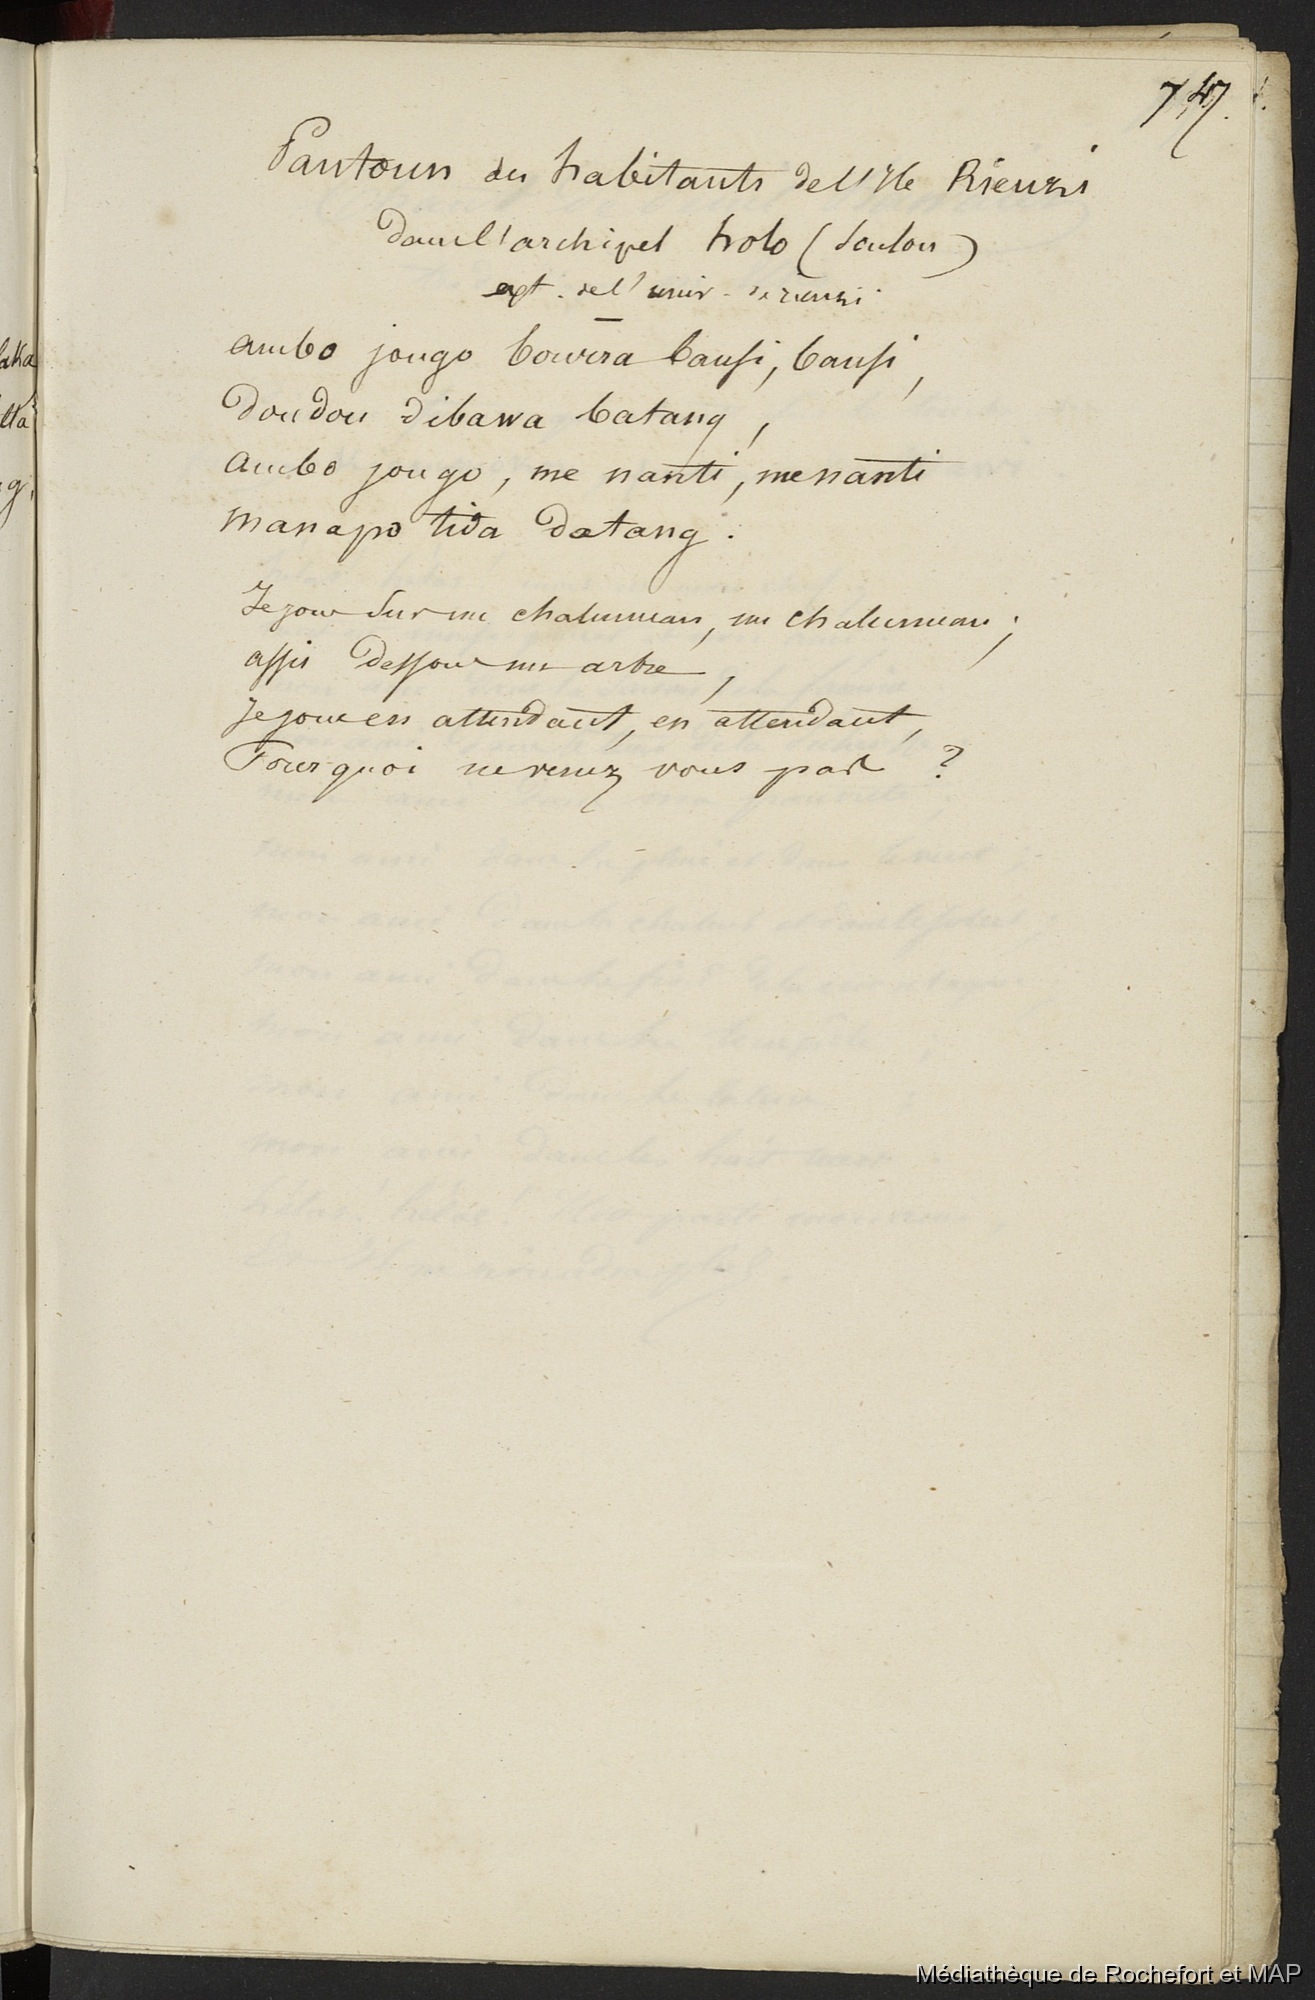 747.
Pantoun des habitants de l'Ile Rienzi
dans l'archipel holo (Soulou)
ext. de l'univ. de rienzi
ambo jougo bouvra bansi, bansi,
doudou dibawa batang,
ambo jougo, me nanti, me nanti
manapo tida datang.
Je joue sur un chalumeau, un chalumeau;
assis dessous un arbre,
Je joue en attendant, en attendant,
Pourquoi ne venez vous pas ?
aka
tta
g.
Médiathèque de Rochefort et MAP